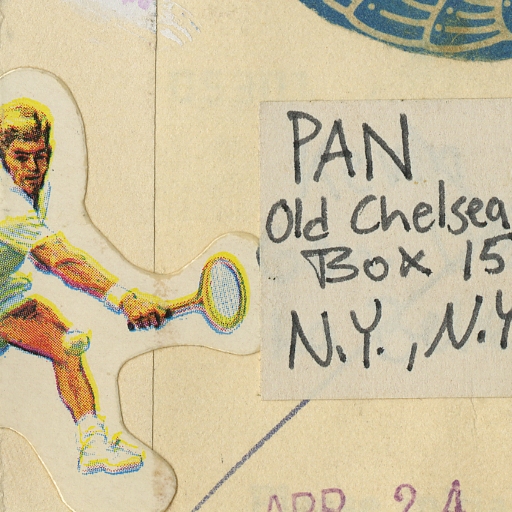 PAN
Old Chelsea
Box 15
N.Y., N.Y
APR 24